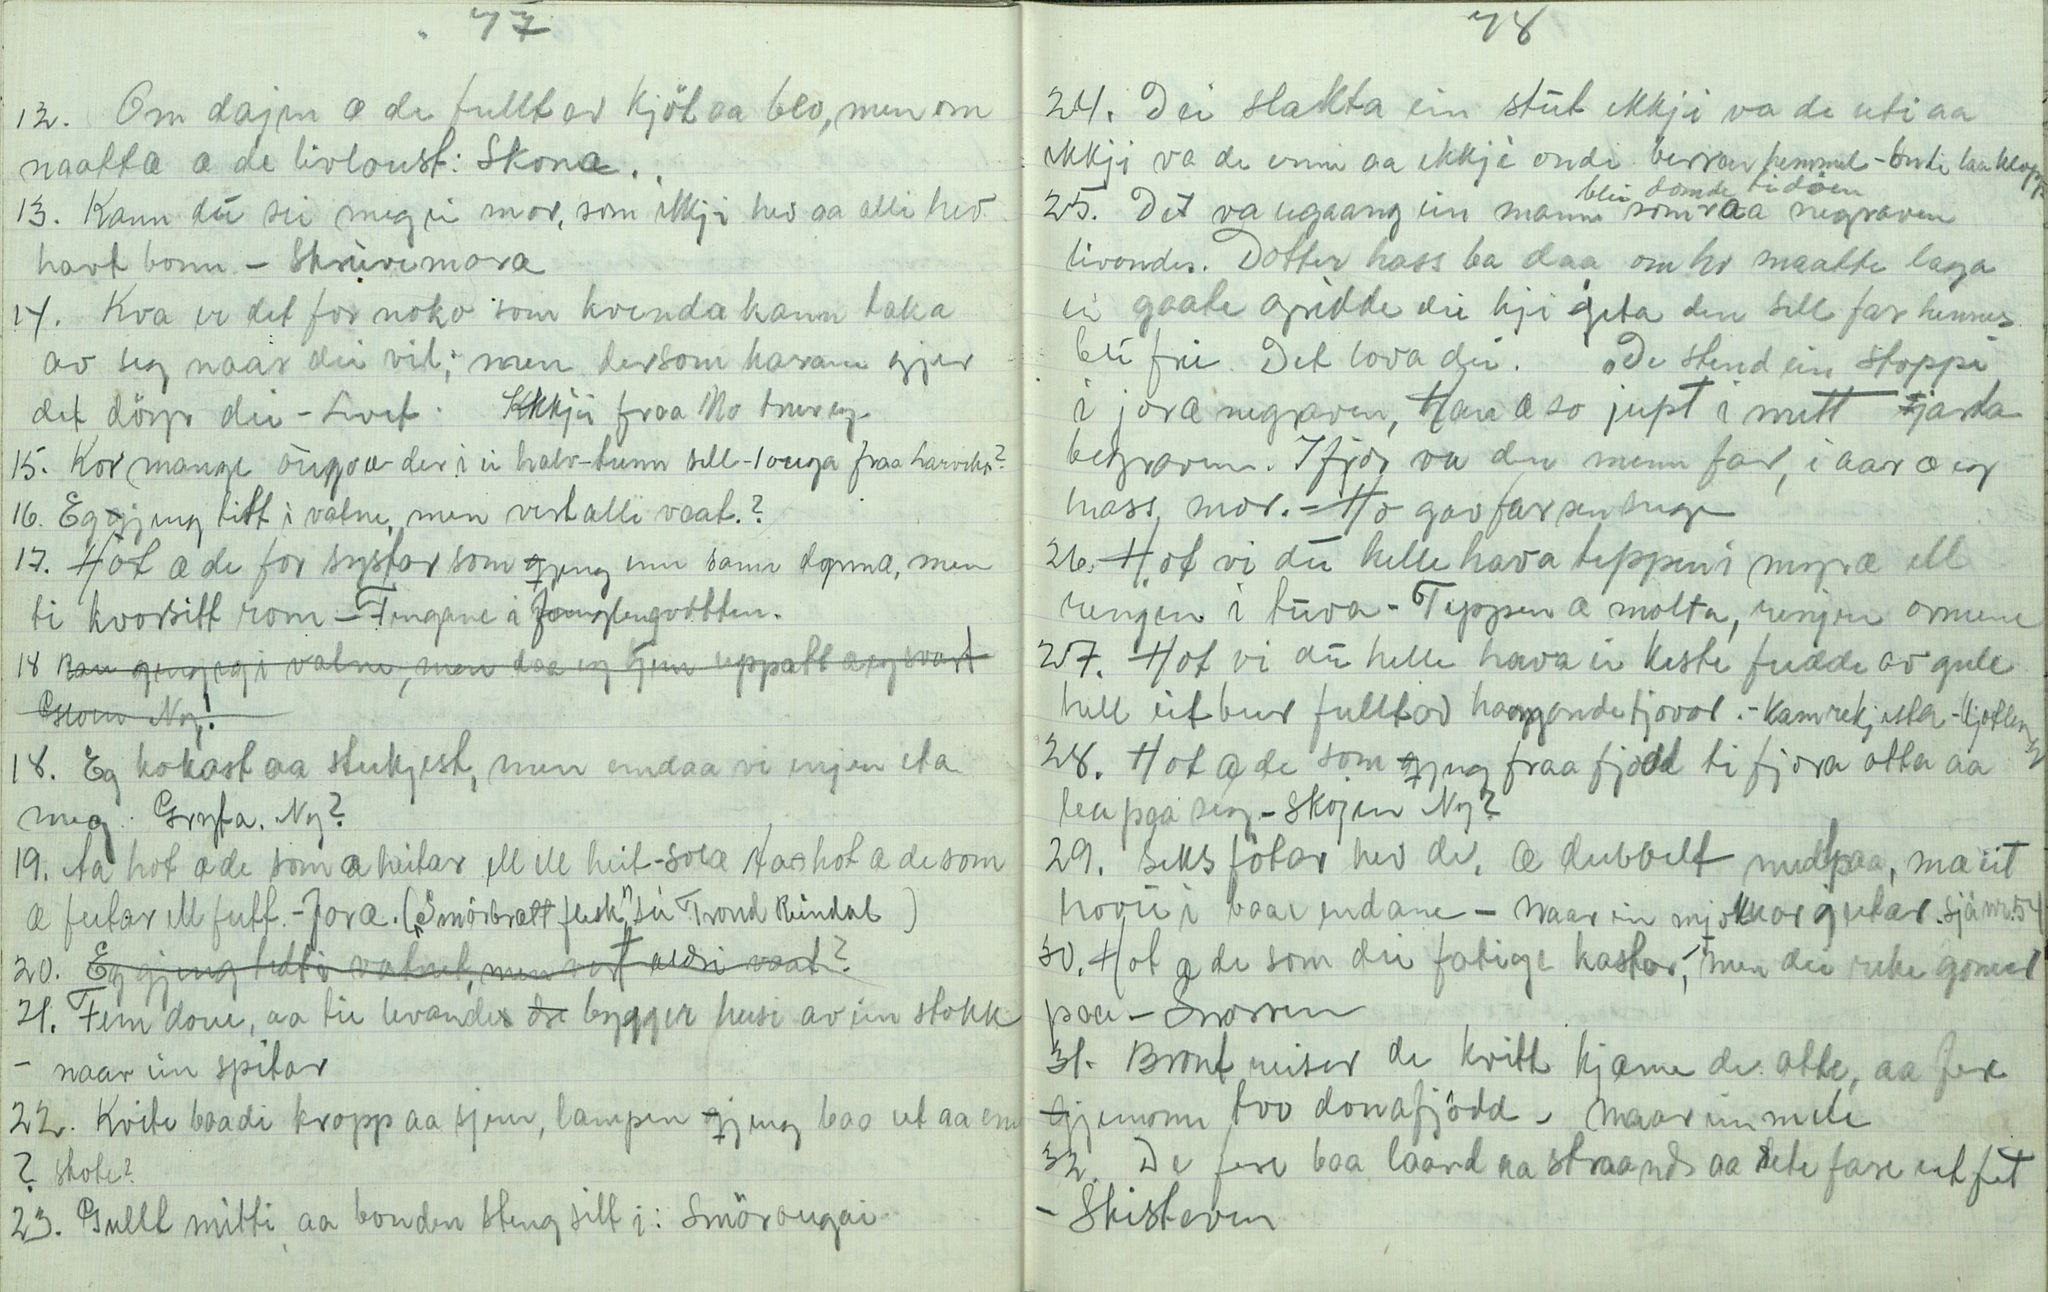 77
12. Om dajen æ de fullt av kjöt aa blo, men om
naatta æ de livloust: Skona..
13. Kann dü sei meg ei mor, som ikkji hev aa alli hev
havt bonn - Skrüvemora
14. Kva er det for noko som kvenda kann taka
av seg naar dei vil; men dersom karane gjer
det döyr dei - Livet. Ikkji fraa Mo trur eg.
15. Kor mange öugo æ der i ei halv-tunn sill - 1 ouga fraa harvelen?
16. Eg gjeng titt i vatne, men vert alli vaat.?
17. Hot æ de for systar som gjeng inn same dynna, men
ti kvorsitt rom - Fingane i fingjengvötten.
18 Ban geng eg i vatne, men daa eg kjem uppatt æ eg svart
Gloun Ny!
18. Eg kokast aa steikjest, men endaa vi ingen eta
meg. Gryta. Ny?
19. Aa hot æ de som æ heitar ell ell heit - sola Aa hot æ de som
æ feitar ell feitt. - Jora. ("Smörbrætt flesk" sei Trond Reindal)
20. Eg gjeng tidt i vatnet, men vert aldri vaat?
21. Fem doue, aa tie levandes dei bygger husi av ein stokk
- naar ein spitar
22. Kvite baadi kropp aa sjem, lampen gjeng bao ut aa inn
? skote?
23. Gullt mitti aa bonden steng sitt i: Smörougai
78
24. Dei slakta ein stüt ikkji va de uti aa
ikkji va de inni aa ikkji ondi berran himmel - onde laa klopp
25. Det va eigaang ein mann som blei dömde ti döen aa negraven
livondes. Dotter hass ba daa om ho maatte laga
ei gaate og ridde dei kji gjeta den sill far hennes
bli fri. Det lova dei. De stend ein stoppi
i jora negraven, Han æ so jupt i mitt hjarta
begraven. Ifjor va den menn far, i aar æ eg
hass mor. - Ho gav far sen suge
26. Hot vi dü helle hava teppen i myræ ell
rengen i tüva - Teppen æ molta, rengen ormene
27. Hot vi dü helle hava ei kiste fudde av gule
hell eit bur fullt av haangande fjovor. - Kamrekjista - Kjøtlen
28. Hot æ de som gjeng fraa fjodd ti fjora otta aa
leu paa seg - Skogen Ny?
29. Seks fötar hev de, æ dubbelt nedpaa, mæ eit
hovü i baae endane - Naar ein mjokkar geitar. sjå nr. 54
30. Hot æ de som dei fatige kastar, men dei rike gömer
paa - Snorren
31. Bront reiser de kvitt kjæme de atte, aa fer
gjenom tvo donafjödd - Naar ein mele
32. De fere baa laand aa straand aa lete fare eit fet
- Skistaven